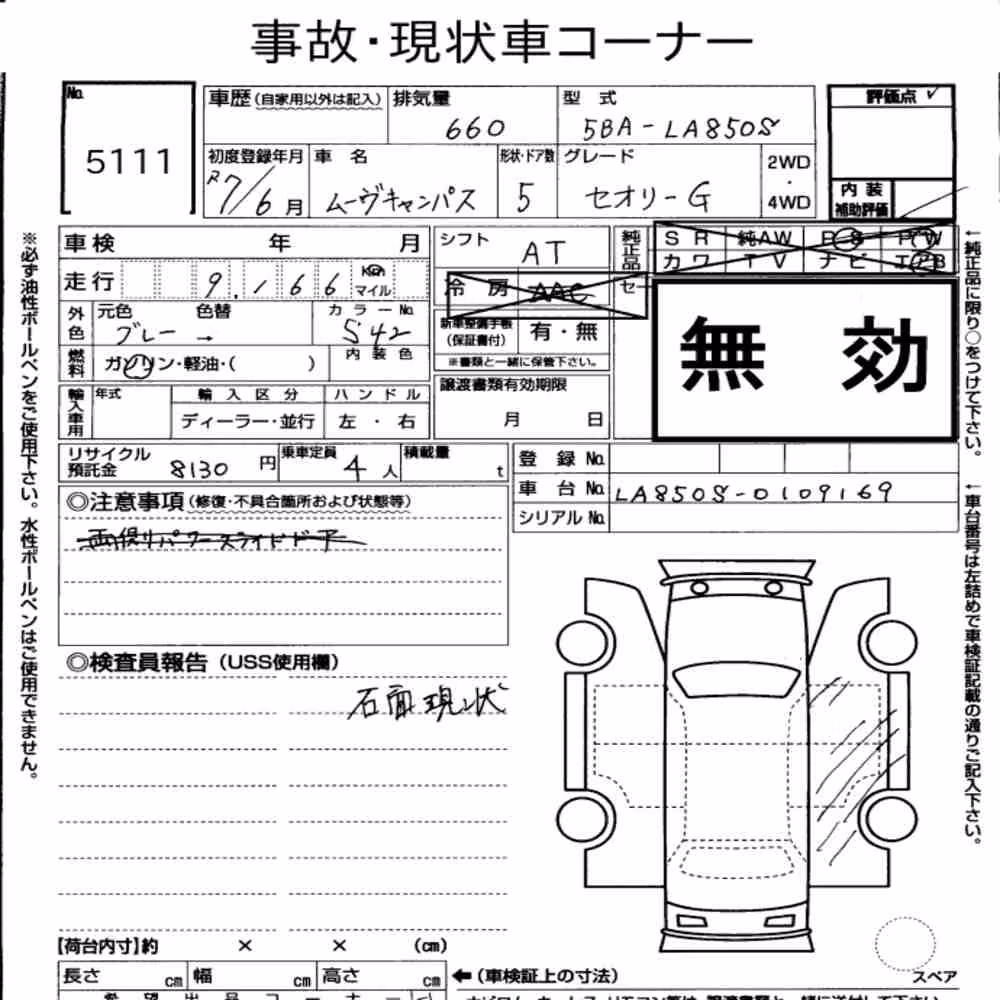 事故・現状車コーナー
No. 5111
車歴(自家用以外は記入) 排気量 660
型式 5BA-LA850S
評価点
初度登録年月 R7/6月
車名 ムーヴキャンバス
形状・ドア数 5
グレード セオリーG
2WD・4WD
内装補助評価
車検 年 月
シフト AT
純正品 SR 純AW PS PW
カワ TV ナビ エアB
走行 9,166 Km マイル
冷房 AAC
外色 元色 色替 グレー →
カラーNo. S42
新車整備手帳(保証書付) 有・無
※書類と一緒に保管下さい。
無効
燃料 ガソリン・軽油・( )
内装色
譲渡書類有効期限 月 日
輸入車用 年式 輸入区分 ハンドル
ディーラー・並行 左・右
リサイクル預託金 8130円
乗車定員 4人
積載量 t
登録No.
車台No. LA850S-0109169
シリアルNo.
◎注意事項(修復・不具合箇所および状態等)
両側パワースライドドア
◎検査員報告(USS使用欄)
右面現状
【荷台内寸】約 × × (cm)
長さ cm 幅 cm 高さ cm
←(車検証上の寸法)
スペア
※必ず油性ボールペンをご使用下さい。水性ボールペンはご使用できません。
←純正品に限り○をつけて下さい。
←車台番号は左詰めで車検証記載の通りご記入下さい。